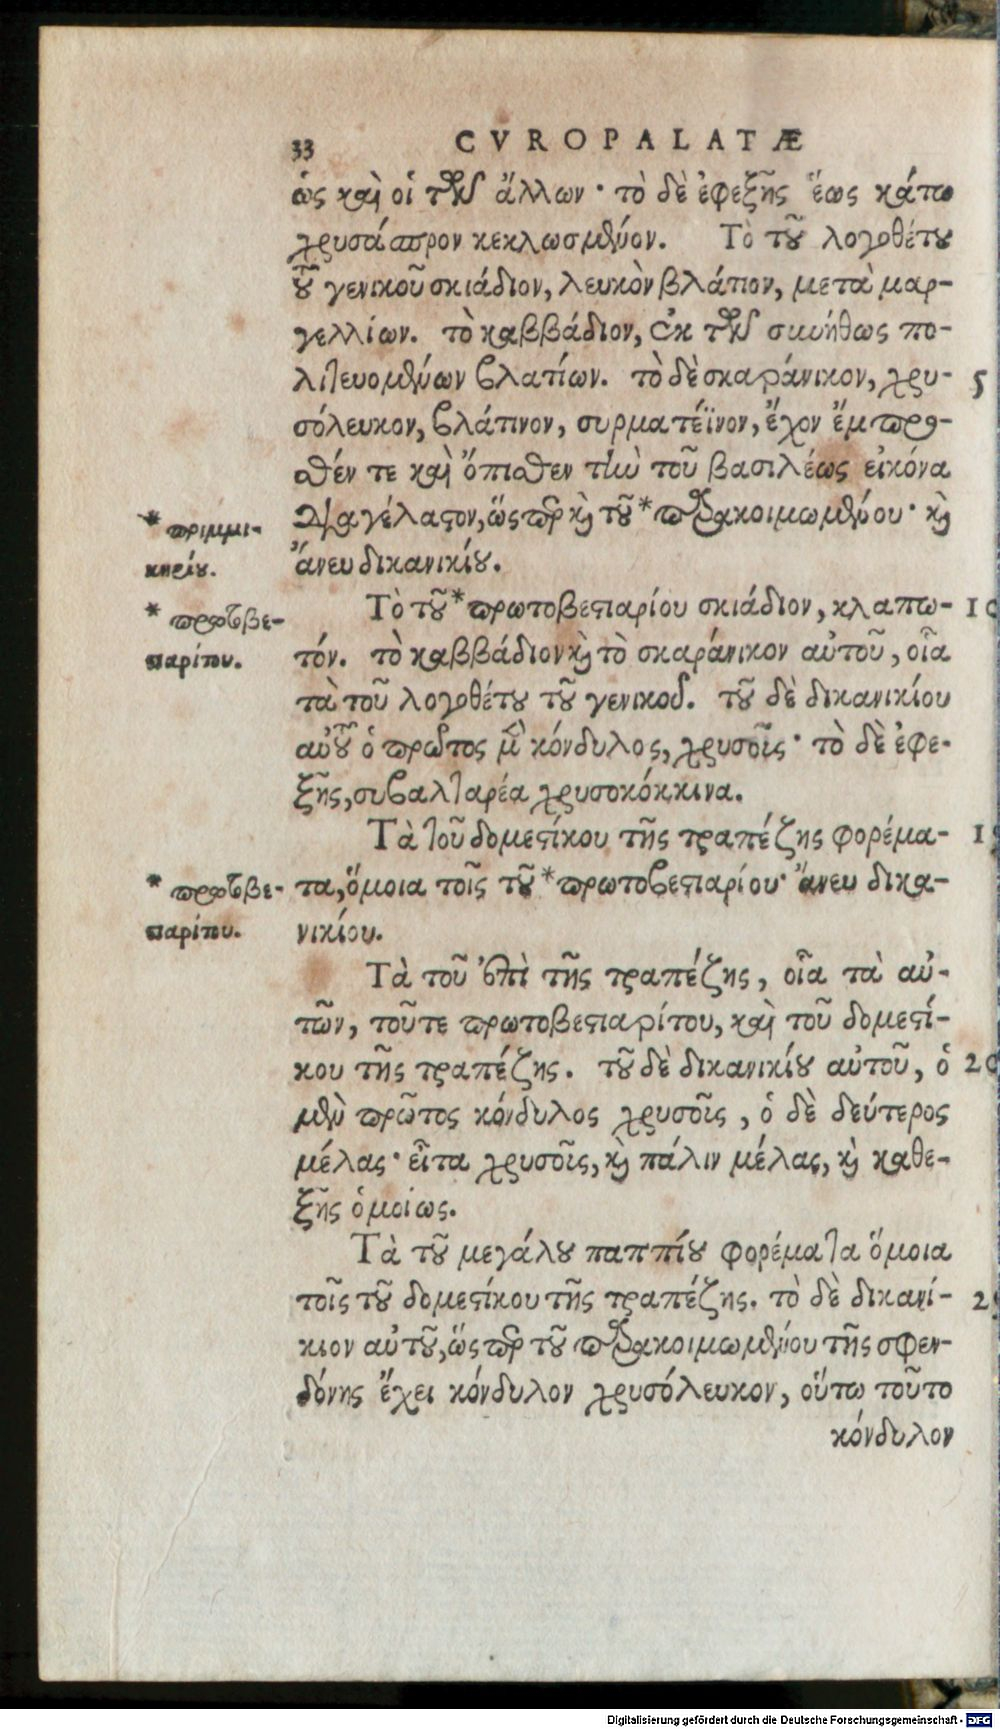 33 CVROPALATÆ
ὡς καὶ οἱ τῶν ἄλλων· τὸ δὲ ἐφεξῆς ἕως κάτω
χρυσάσπρον κεκλωσμένον. Τὸ τοῦ λογοθέτου
τοῦ γενικοῦ σκιάδιον, λευκὸν βλάτιον, μετὰ μαρ-
γελλίων. τὸ καββάδιον, ἐκ τῶν συνήθως πο-
λιτευομένων βλατίων. τὸ δὲ σκαράνικον, χρυ- 5
σόλευκον, βλάτινον, συρματέϊνον, ἔχον ἔμπρο-
σθέν τε καὶ ὄπισθεν τὴν τοῦ βασιλέως εἰκόνα
* πριμμι-
κηρίου.
διαγέλαστον, ὥσπερ καὶ τοῦ * παρακοιμωμένου· καὶ
ἄνευ δικανικίου.
* πρωτοβε-
στιαρίτου.
Τὸ τοῦ * πρωτοβεστιαρίου σκιάδιον, κλαπω- 10
τόν. τὸ καββάδιον καὶ τὸ σκαράνικον αὐτοῦ, οἷα
τὰ τοῦ λογοθέτου τοῦ γενικοῦ. τοῦ δὲ δικανικίου
αὐτοῦ ὁ πρῶτος μὲν κόνδυλος, χρυσοῦς· τὸ δὲ ἐφε-
ξῆς, συβαλταρέα χρυσοκόκκινα.
Τὰ τοῦ δομεστίκου τῆς τραπέζης φορέμα- 1
* πρωτοβε-
στιαρίτου.
τα, ὅμοια τοῖς τοῦ * πρωτοβεστιαρίου· ἄνευ δικα-
νικίου.
Τὰ τοῦ ἐπὶ τῆς τραπέζης, οἷα τὰ αὐ-
τῶν, τοῦτε πρωτοβεστιαρίτου, καὶ τοῦ δομεστί-
κου τῆς τραπέζης. τοῦ δὲ δικανικίου αὐτοῦ, ὁ 20
μὲν πρῶτος κόνδυλος χρυσοῦς, ὁ δὲ δεύτερος
μέλας· εἶτα χρυσοῦς, καὶ πάλιν μέλας, καὶ καθε-
ξῆς ὁμοίως.
Τὰ τοῦ μεγάλου παππίου φορέματα ὅμοια
τοῖς τοῦ δομεστίκου τῆς τραπέζης. τὸ δὲ δικανί- 2
κιον αὐτοῦ, ὥσπερ τοῦ παρακοιμωμένου τῆς σφεν-
δόνης ἔχει κόνδυλον χρυσόλευκον, οὕτω τοῦτο
κόνδυλον
Digitalisierung gefördert durch die Deutsche Forschungsgemeinschaft - DFG